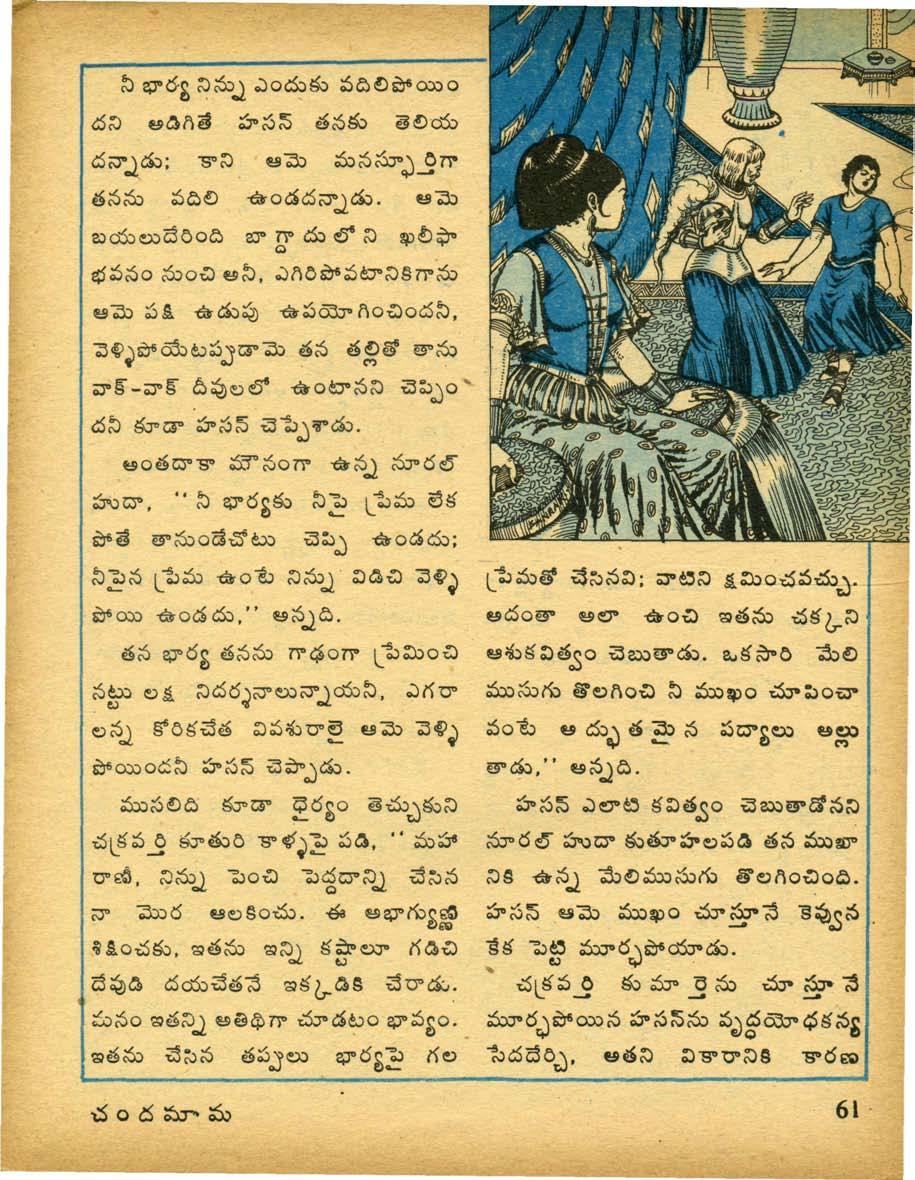 నీ భార్య నిన్ను ఎందుకు వదిలిపోయిం
దని అడిగితే హసన్ తనకు తెలియ
దన్నాడు; కాని ఆమె మనస్ఫూర్తిగా
తనను వదిలి ఉండదన్నాడు. ఆమె
బయలుదేరింది బాగ్దాదులోని ఖలీఫా
భవనం నుంచి అనీ, ఎగిరిపోవటానికిగాను
ఆమె పక్షి ఉడుపు ఉపయోగించిందనీ,
వెళ్ళిపోయేటప్పుడామె తన తల్లితో తాను
వాక్-వాక్ దీవులలో ఉంటానని చెప్పిం
దనీ కూడా హసన్ చెప్పేశాడు.
అంతదాకా మౌనంగా ఉన్న నూరల్
హుదా, ‘‘నీ భార్యకు నీపై ప్రేమ లేక
పోతే తానుండేచోటు చెప్పి ఉండదు;
నీపైన ప్రేమ ఉంటే నిన్ను విడిచి వెళ్ళి
పోయి ఉండదు,’’ అన్నది.
తన భార్య తనను గాఢంగా ప్రేమించి
నట్టు లక్ష నిదర్శనాలున్నాయనీ, ఎగరా
లన్న కోరికచేత వివశురాలై ఆమె వెళ్ళి
పోయిందనీ హసన్ చెప్పాడు.
ముసలిది కూడా ధైర్యం తెచ్చుకుని
చక్రవర్తి కూతురి కాళ్ళపై పడి, ‘‘మహా
రాణీ, నిన్ను పెంచి పెద్దదాన్ని చేసిన
నా మొర ఆలకించు. ఈ అభాగ్యుణ్ణి
శిక్షించకు, ఇతను ఇన్ని కష్టాలూ గడిచి
దేవుడి దయచేతనే ఇక్కడికి చేరాడు.
మనం ఇతన్ని అతిథిగా చూడటం భావ్యం.
ఇతను చేసిన తప్పులు భార్యపై గల
ప్రేమతో చేసినవి; వాటిని క్షమించవచ్చు.
అదంతా అలా ఉంచి ఇతను చక్కని
ఆశుకవిత్వం చెబుతాడు. ఒకసారి మేలి
ముసుగు తొలగించి నీ ముఖం చూపించా
వంటే అద్భుతమైన పద్యాలు అల్లు
తాడు,’’ అన్నది.
హసన్ ఎలాటి కవిత్వం చెబుతాడోనని
నూరల్ హుదా కుతూహలపడి తన ముఖా
నికి ఉన్న మేలిముసుగు తొలగించింది.
హసన్ ఆమె ముఖం చూస్తూనే కెవ్వున
కేక పెట్టి మూర్ఛపోయాడు.
చక్రవర్తి కుమార్తెను చూస్తూనే
మూర్ఛపోయిన హసన్‌ను వృద్ధయోధకన్య
సేదదేర్చి, అతని వికారానికి కారణ
చందమామ
61